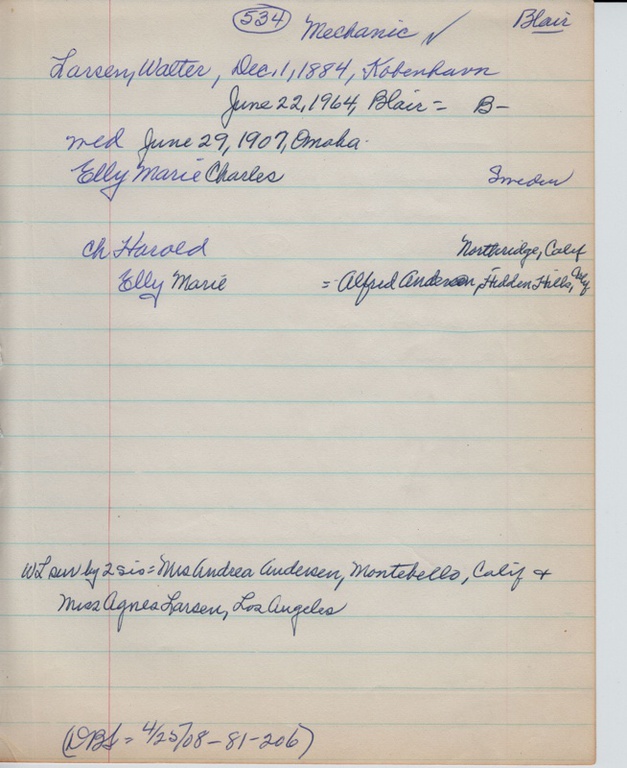 534 Mechanic ✓ Blair
Larsen, Walter, Dec. 1, 1884, Kobenhavn
June 22, 1964, Blair = B-
med June 29, 1907, Omaha.
Elly Marie Charles Sweden
ch Harold Northridge, Calif
Elly Marie = Alfred Andersen, Hidden Hills, Calif
WL surv by 2 sis = Mrs Andrea Andersen, Montebello, Calif +
Miss Agnes Larsen, Los Angeles
(DBS = 4/25/08-81-206)